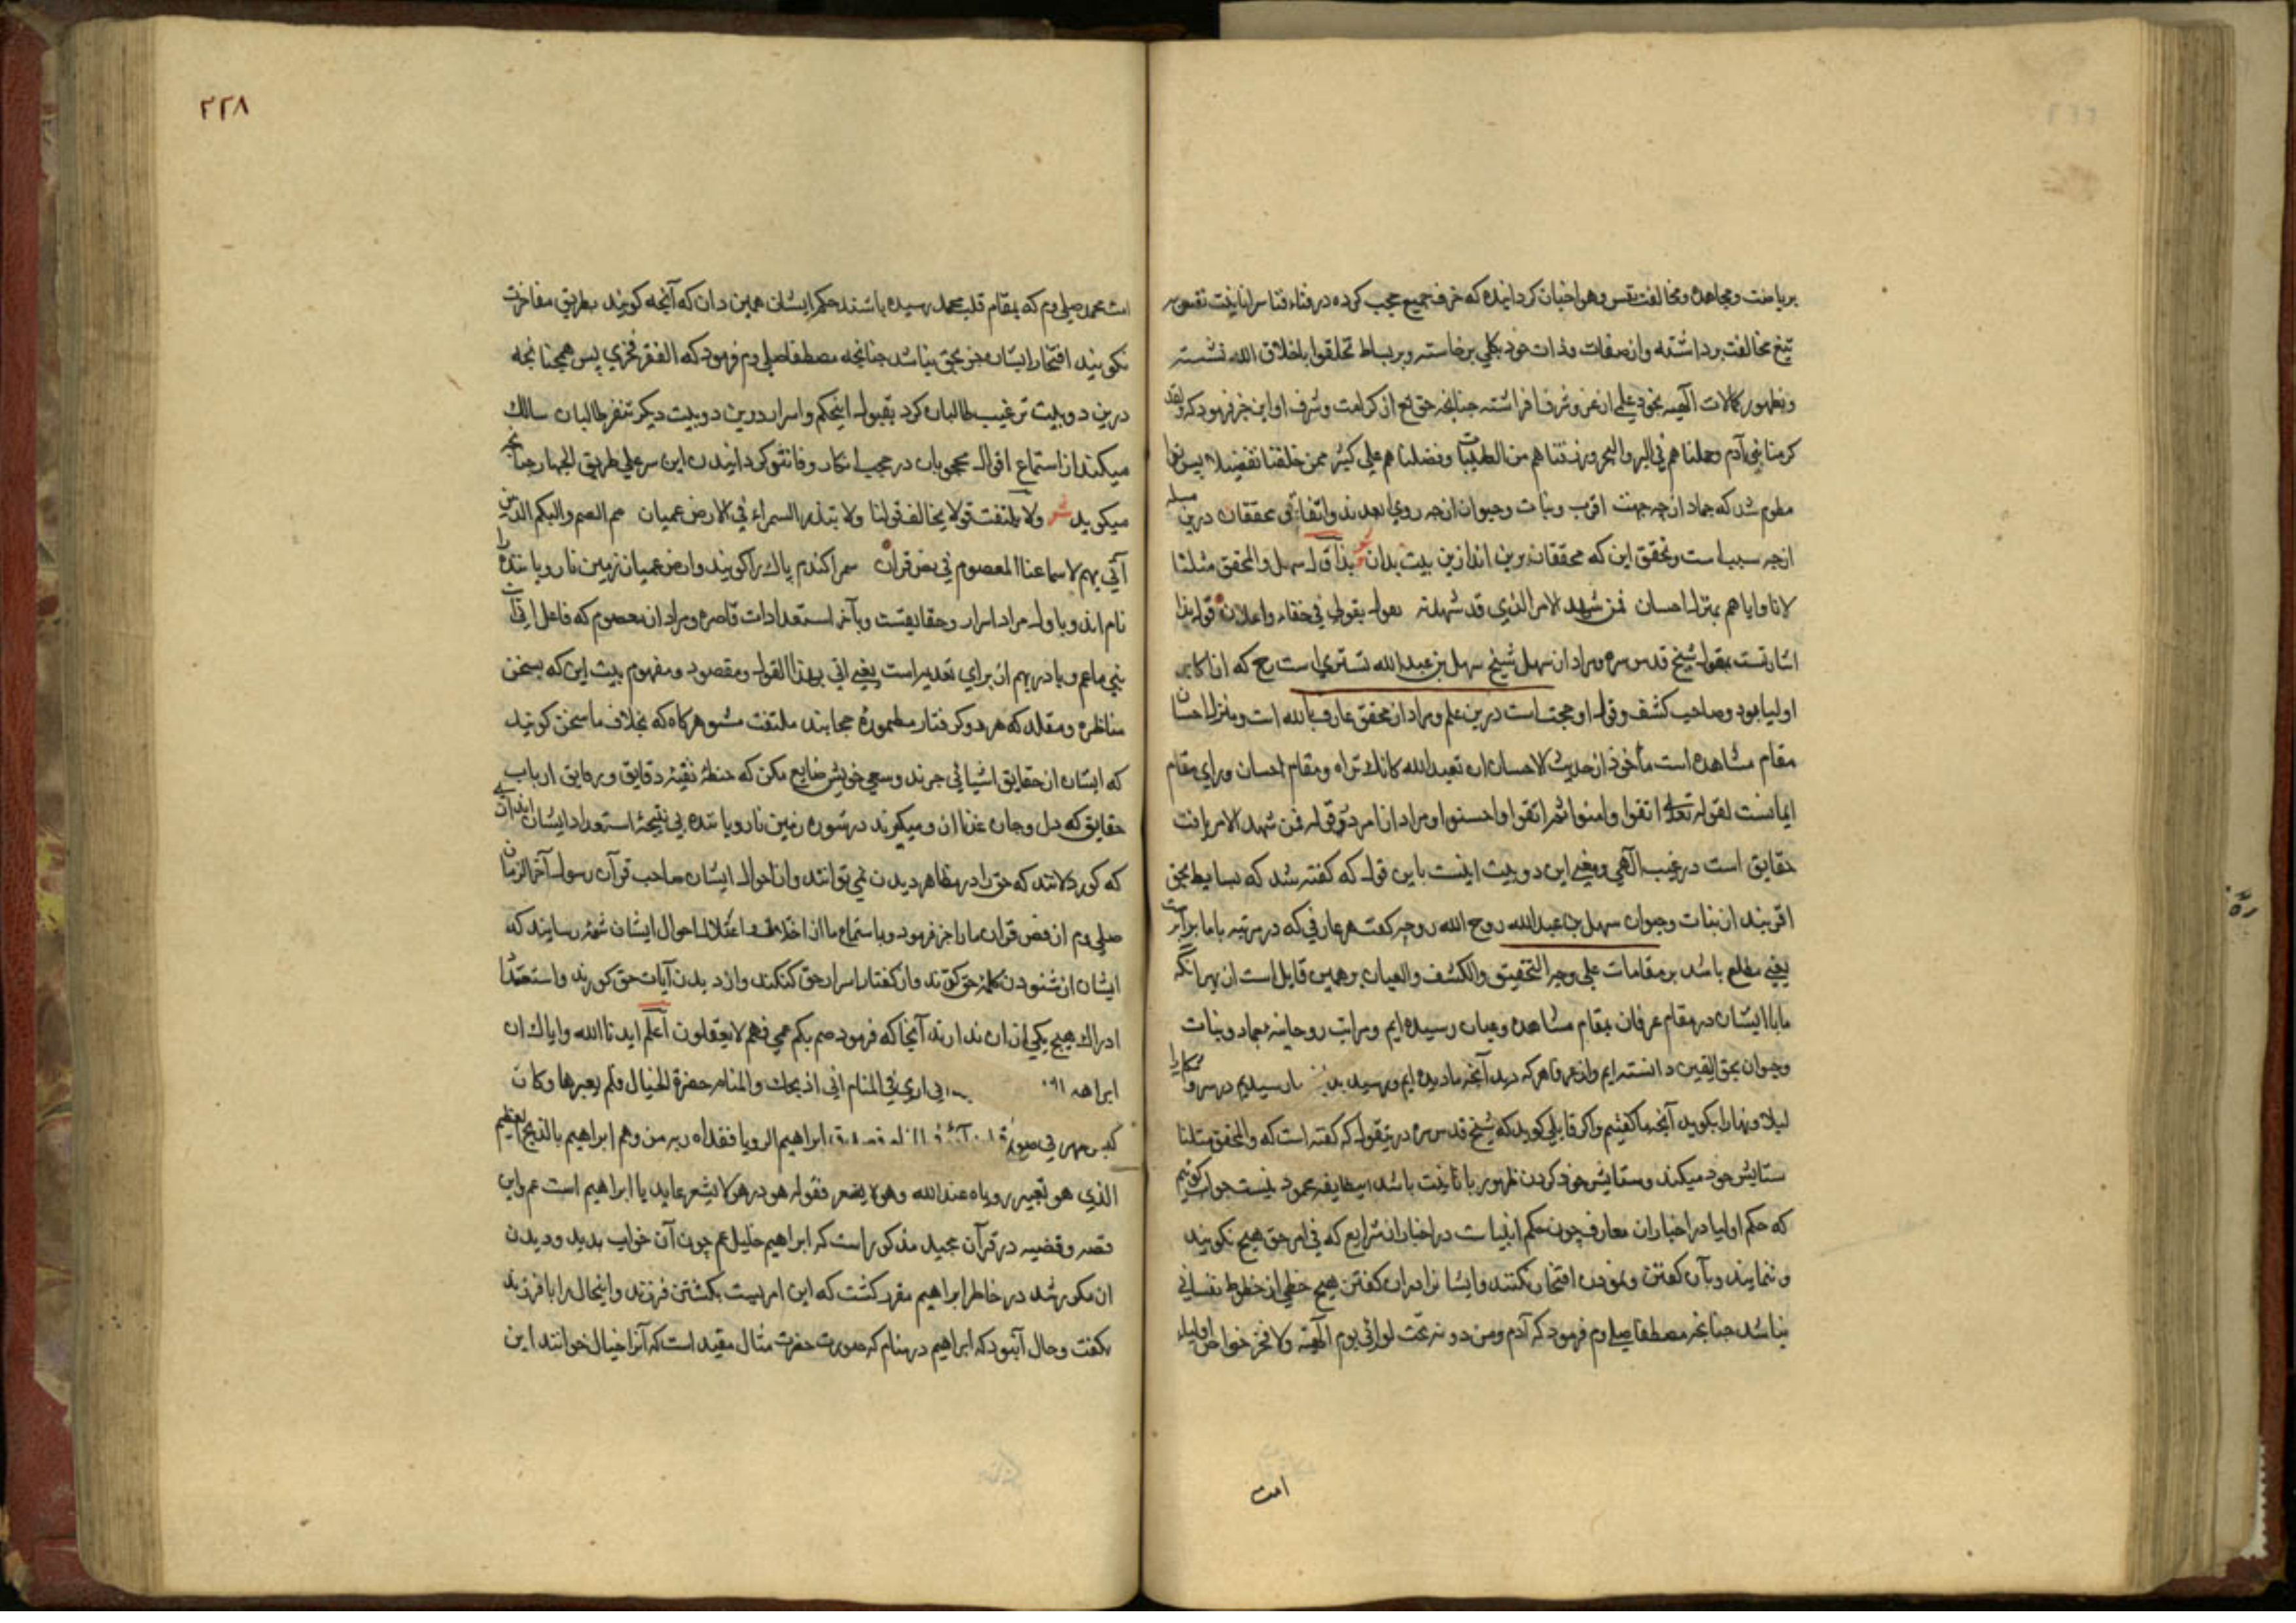 بریاضت ومجاهده ومخالفت نفس وهوا چنان کردانیده که خرق جمیع حجب کرده در فناء فنا سر انانیت نفس بر
تیغ مخالفت برداشته واز صفات وذات خود بکلی برخاسته وبر بساط تخلقوا باخلاق الله نشسته
وبظهور کمالات الهیه بخود علم از عز وشرف افراشته چنانچه حق تع از کرامت وشرف او این خبر فرمود که ولقد
کرمنا بنی آدم وحملناهم فی البر والبحر ورزقناهم من الطیبات وفضلناهم علی کثیر ممن خلقنا تفضیلا پس ترا
معلوم شد که جماد از چه جهت اقرب ونبات وحیوان از چه روی ابعدند واتفاق محققان درین مسله
ازچه سبب است وتحقق این که محققان برین اند ازین بیت بدان شعر بذا قال سهل والمحقق مثلنا
لانا وایاهم بمنزل احسان فمن شهد الامر الذی قد شهدته یقول بقولی فی خفاء واعلان قوله بذا
اشارتست بقول شیخ قدس سره ومراد از سهل شیخ سهل بن عبد الله تستری است رح که از اکابر
اولیا بود وصاحب کشف وقول او حجت است درین علم ومراد از محقق عارف بالله است ومنزل احسان
مقام مشاهده است مأخوذ از حدیث الاحسان ان تعبد الله کانک تراه ومقام احسان ورای مقام
ایمانست لقوله تعالی اتقوا وامنوا ثم اتقوا واحسنوا ومراد از امر در قوله فمن شهد الامر یافت
حقایق است در غیب الهی ومعنی این دو بیت اینست باین قول که کفته شد که بسایط بحق
اقربند از نبات وحیوان سهل بن عبد الله روح الله روحه کفت هر عارفی که در مرتبه باما برابرست
یعنی مطلع باشد بر مقامات علی وجه التحقیق والکشف والعیان بر همین قایل است از بهر انکه
ما با ایشان در مقام عرفان بمقام مشاهده وعیان رسیده ایم ومراتب روحانیه جماد ونبات
وحیوان بحق الیقین دانسته ایم واز عرفا هر که دید آنچه ما دیده ایم ورسید بدین رسیدیم در سر وآشکارا
لیلا ونهارا بکوید آنچه ما کفتیم واکر قایلی کوید که شیخ قدس سره درین قول که کفته است که والمحقق مثلنا
ستایش خود میکند وستایش خود کردن ظهور با نانیت باشد این طایفه محمود نیست جواب کوئیم
که حکم اولیا در اخبار از معارف چون حکم انبیاست در اخبار از شرایع که فی امر حق هیچ نکویند
وننمایند وبآن کفتن ونمودن افتخار نکنند وایشانرا در ان کفتن هیچ حظی از حظوظ نفسانی
نباشد چنانچه مصطفا صلی وم فرمود که آدم ومن دونه تحت لوائی یوم القیمه ولا فخر خواص اولیاء
امت
۲۲۸
امت محمد صلی وم که بمقام قلب محمد رسیده باشند حکم ایشان همین دان که آنچه کویند بطریق مفاخرت
نکویند افتخار ایشان جز بحق نباشد چنانچه مصطفا صلی وم فرمود که الفقر فخری پس همچنانچه
درین دو بیت ترغیب طالبان کرد بقبول این حکم واسرار درین دو بیت دیکر تنفر طالبان سالک
میکند از استماع اقوال محجوبان در حجب انکار وفاش کردانیدن این سر علی طریق الجهار چنانچه
میکوید شعر ولا تلتفت قولا یخالف قولنا ولا تبذر السمراء فی الارض عمیان هم الصم والبکم الذین
آتی بهم لاسماعنا المعصوم فی نص قرآن سمرا کندم پاک را کویند وارض عمیان زمین نا رویاننده را
نام اند وباول مراد اسرار وحقایقست وبآخر استعدادات قاصره ومراد از معصوم که فاعل اتی است
نبی ماعم وبا در بهم از برای تعدیه است یعنی اتی بهذا القول ومقصود ومفهوم بیت این که بسخن
مناظره ومقلد که هر دو کرفتار مطموره حجابند ملتفت مشو هرکاه که بخلاف ما سخن کویند
که ایشان از حقایق اشیا بی خبرند وسعی خویش ضایع مکن که حنطهٔ نقیهٔ دقایق ورقایق ارباب
حقایق که دل وجان غذا ازو میکیرند در شوره زمین نا رویاننده بی نتیجهٔ استعداد ایشان
که کوردلانند که حق را در مظاهر دیدن نمی توانند واز احوال ایشان صاحب قرآن رسول آخر الزمان
صلی وم از نص قرآن مارا خبر فرمود وباستماع ما از احوال ایشان شمهٔ رسانید که
ایشان از شنودن کلمهٔ حق کرند واز کفتار اسرار حق کنکند واز دیدن آیات حق کورند واستعداد
ادراک هیچ یکی از ان ندارند آنجا که فرمود صم بکم عمی فهم لا یعقلون اعلم ایدنا الله وایاک ان
ابراهیم انی اری فی المنام انی اذبحک والمنام حضرة الخیال فلم یعبرها وکان
کبش ظهر فی صورة ابراهیم الرویا ففداه ربه من وهم ابراهیم بالذبح العظیم
الذی هو تعبیر رویاه عند الله وهو لا یشعر فقوله هو در هو لا یشعر عاید یا ابراهیم است عم واین
قصه وقضیه در قرآن مجید مذکور است که ابراهیم خلیل عم چون آن خواب بدید ودیدن
ان مکرر شد در خاطر ابراهیم مقرر کشت که این امریست بکشتن فرزند واین حال را با فرزند
بکفت وحال آنبود که ابراهیم در منام که صورت حضرت مثال مقید است که آنرا خیال خوانند این